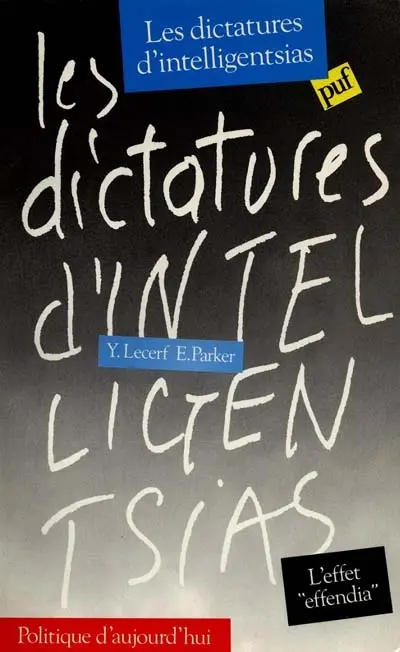 Les dictatures
d'intelligentsias
puf
les
dictatures
d'INTEL
LIGEN
TSiAS
Y. Lecerf E. Parker
L'effet
"effendia"
Politique d'aujourd'hui